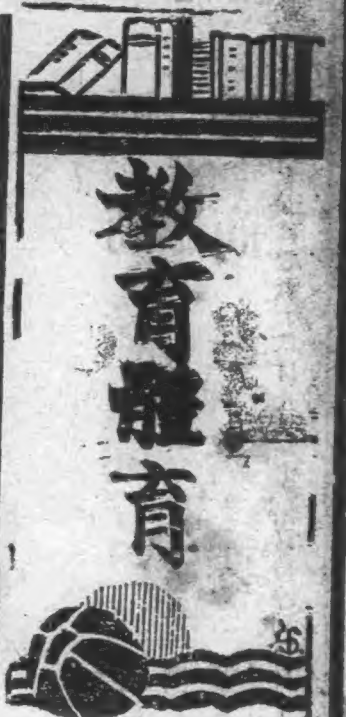 教育體育